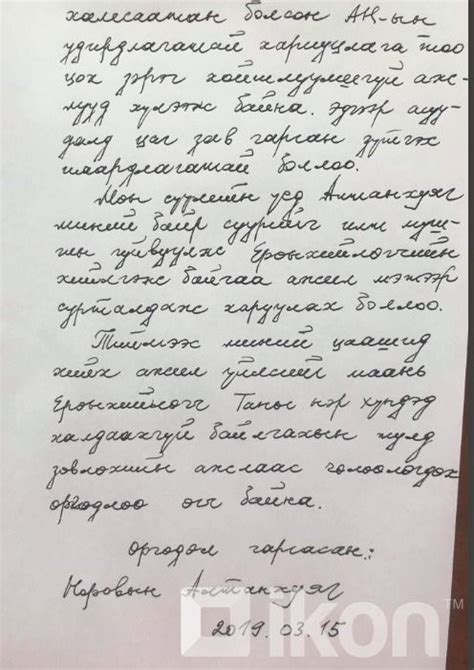 халсаатан болсон АН-ын
удирдлагатай хариуцлага тоо
цох зэрэг хойшлуулшгүй аж-
лууд хүлээж байна. Эдгээр асуу-
далд цаг зав гарган зүтгэх
шаардлагатай боллоо.
Мөн сүүлийн үед Алтанхуяг
миний байр суурийг илт муш-
гин гуйвуулж Ерөнхийлөгчийн
хийлгэж байгаа ажил мэтээр
сурталдаж харуулах боллоо.
Тиймээс миний цаашид
хийх ажил үйлсийг маань
Ерөнхийлөгч Таны нэр хүндэд
халдаахгүй байлгахын тулд
зөвлөхийн ажлаас чөлөөлөгдөх
өргөдлөө өгч байна.
Өргөдөл гаргасан:
Норовын Алтанхуяг
2019.03.15
ikon™